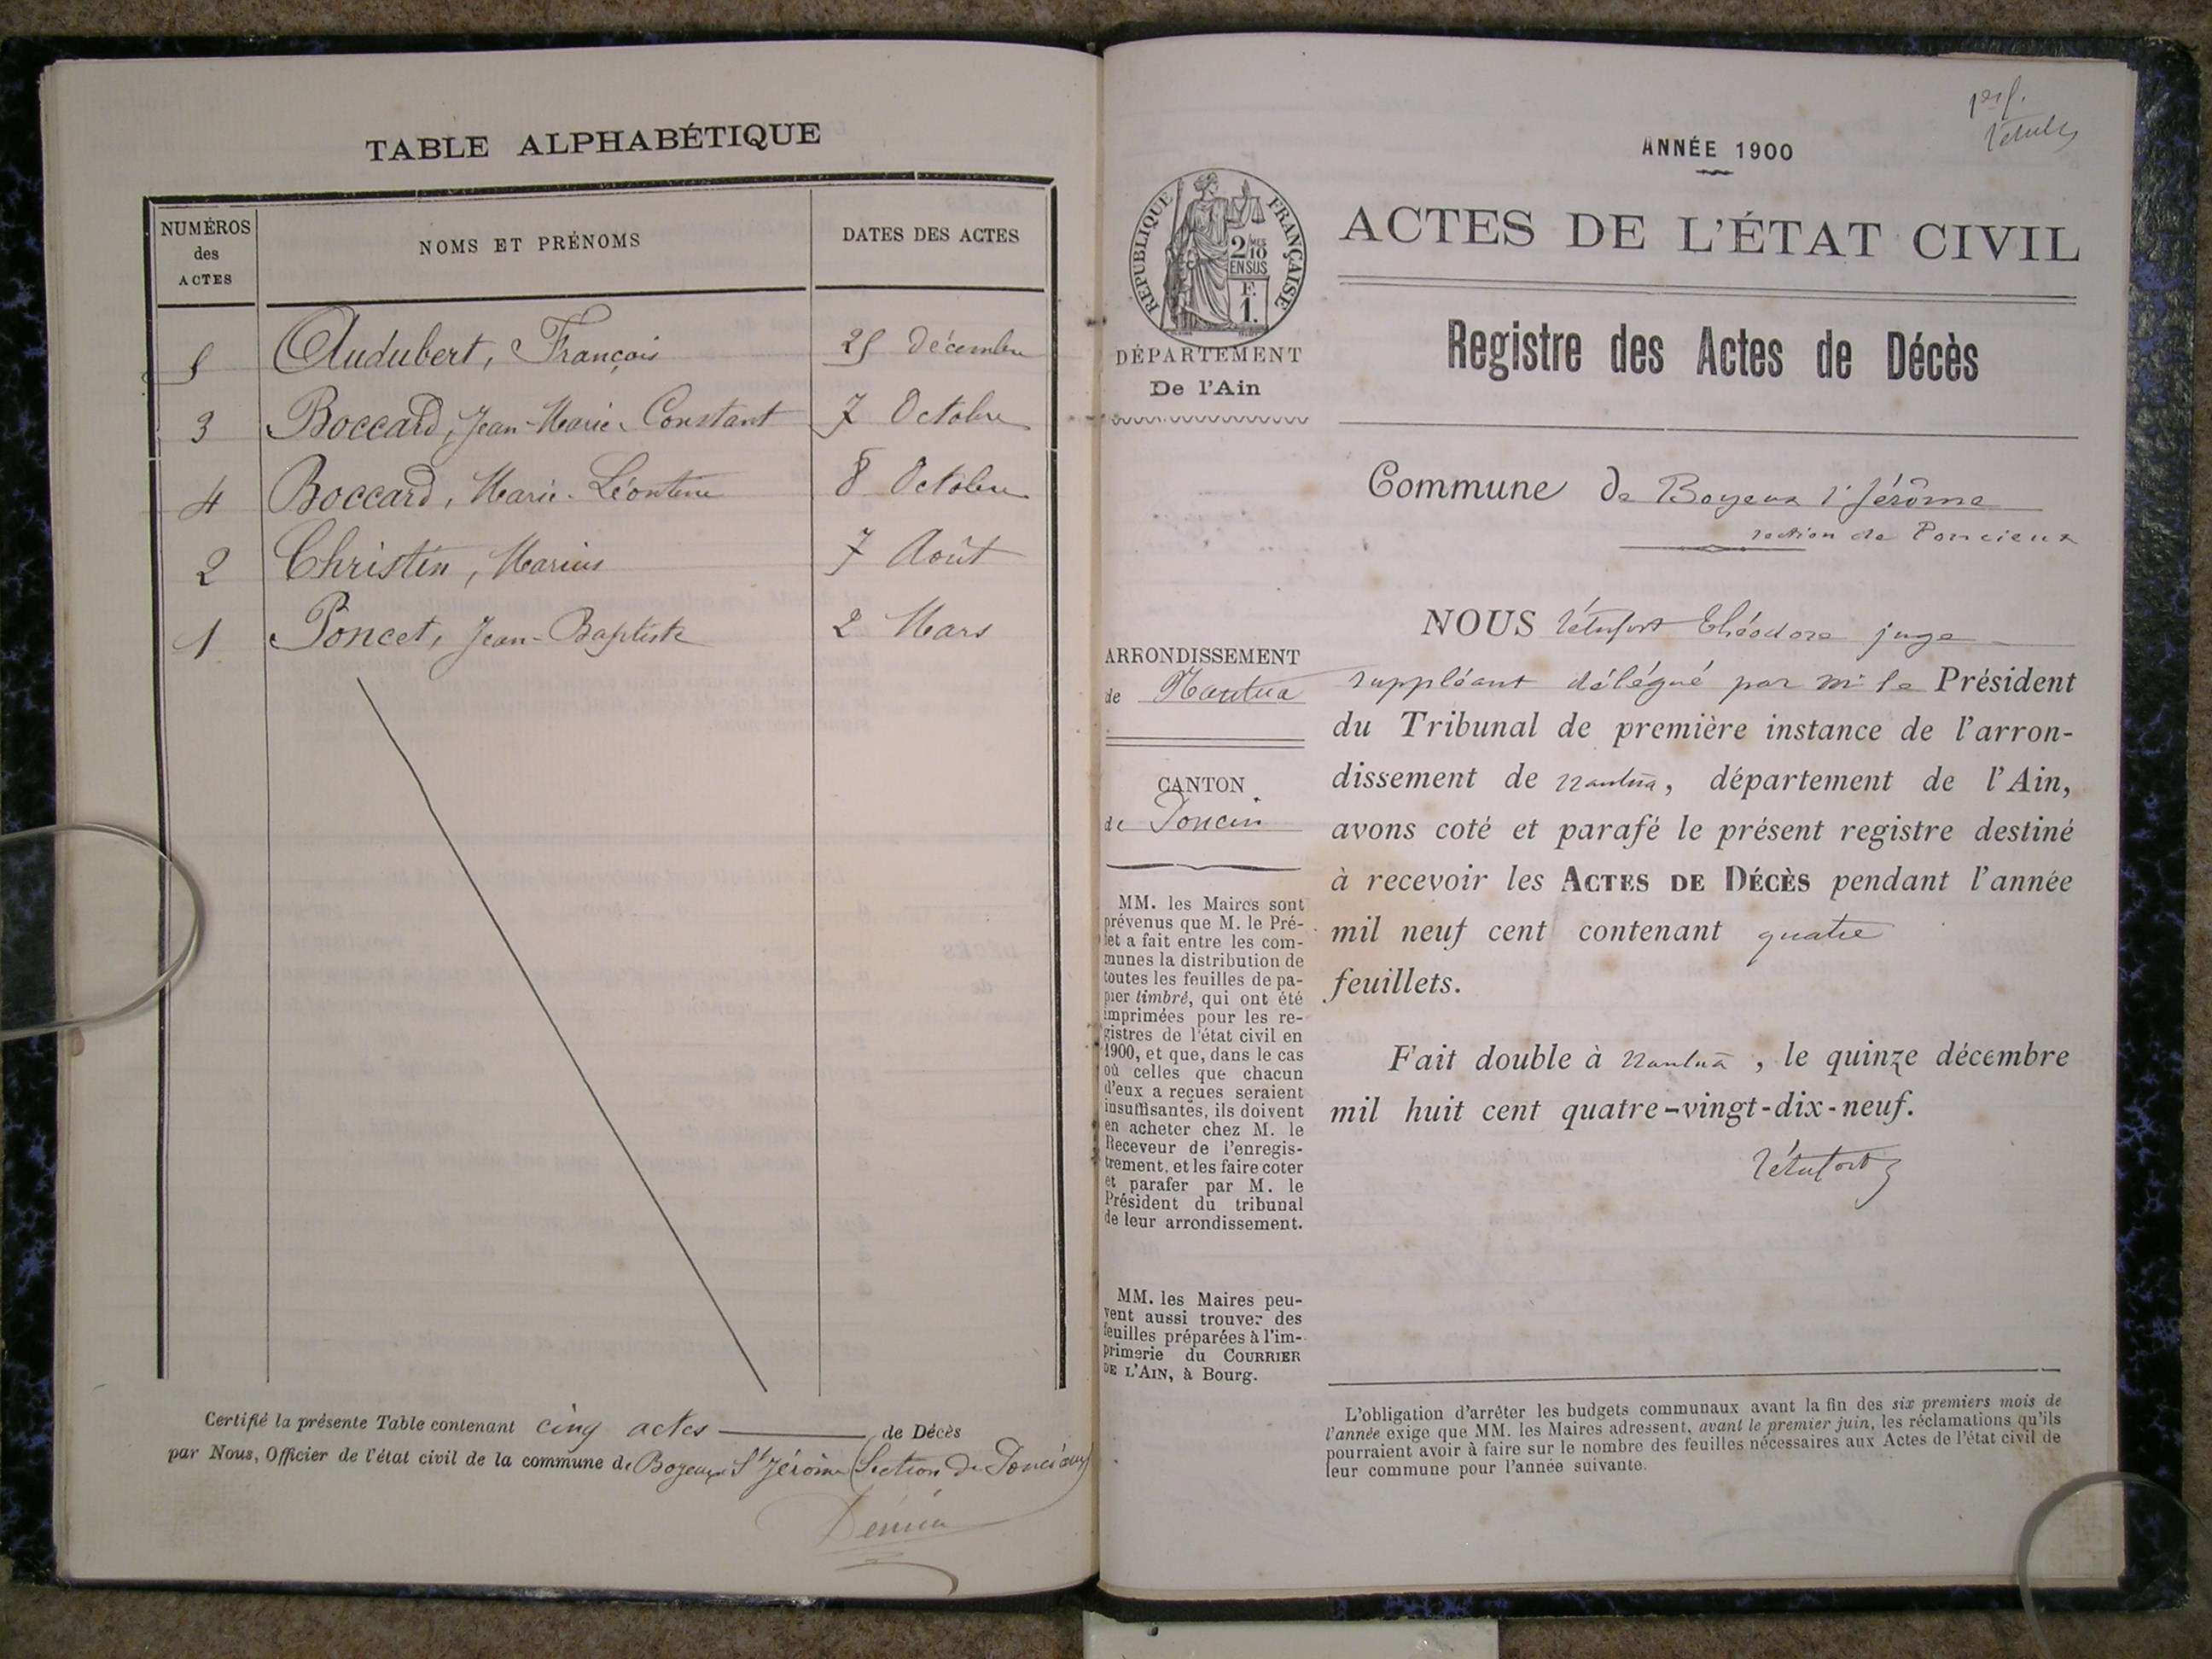 TABLE ALPHABÉTIQUE
NUMÉROS des ACTES
NOMS ET PRÉNOMS
DATES DES ACTES
5 Audubert, François 25 Décembre
3 Boccard, Jean-Marie-Constant 7 Octobre
4 Boccard, Marie-Léontine 8 Octobre
2 Christin, Marius 7 Août
1 Poncet, Jean-Baptiste 2 Mars
Certifié la présente Table contenant cinq actes de Décès
par Nous, Officier de l'état civil de la commune de Boyeux St Jérôme (Section de Poncieux)
1er f.
ANNÉE 1900
RÉPUBLIQUE FRANÇAISE
2/10 MES
EN SUS
F.
1.
DÉPARTEMENT
De l'Ain
ARRONDISSEMENT
de Nantua
CANTON
de Poncin
MM. les Maires sont
prévenus que M. le Pré-
fet a fait entre les com-
munes la distribution de
toutes les feuilles de pa-
pier timbré, qui ont été
imprimées pour les re-
gistres de l'état civil en
1900, et que, dans le cas
où celles que chacun
d'eux a reçues seraient
insuffisantes, ils doivent
en acheter chez M. le
Receveur de l'enregis-
trement, et les faire coter
et parafer par M. le
Président du tribunal
de leur arrondissement.
MM. les Maires peu-
vent aussi trouver des
feuilles préparées à l'im-
primerie du COURRIER
DE L'AIN, à Bourg.
ACTES DE L'ÉTAT CIVIL
Registre des Actes de Décès
Commune de Boyeux St Jérôme
section de Poncieux
NOUS Théodore juge
suppléant délégué par Mr le Président
du Tribunal de première instance de l'arron-
dissement de Nantua, département de l'Ain,
avons coté et parafé le présent registre destiné
à recevoir les ACTES DE DÉCÈS pendant l'année
mil neuf cent contenant quatre
feuillets.
Fait double à Nantua, le quinze décembre
mil huit cent quatre-vingt-dix-neuf.
L'obligation d'arrêter les budgets communaux avant la fin des six premiers mois de
l'année exige que MM. les Maires adressent, avant le premier juin, les réclamations qu'ils
pourraient avoir à faire sur le nombre des feuilles nécessaires aux Actes de l'état civil de
leur commune pour l'année suivante.